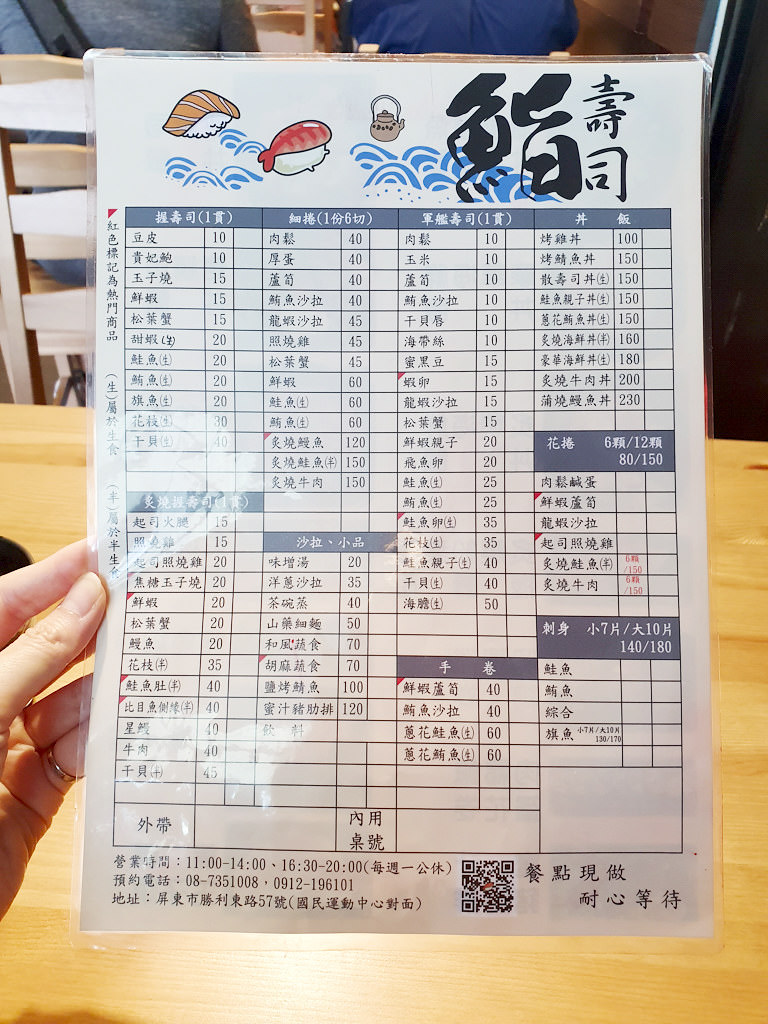 鮨
壽司
紅色標記為熱門商品
(生)屬於生食
(半)屬於半生食
握壽司(1貫)
豆皮 10
貴妃鮑 10
玉子燒 15
鮮蝦 15
松葉蟹 15
甜蝦(生) 20
鮭魚(生) 20
鮪魚(生) 20
旗魚(生) 20
花枝(生) 30
干貝(生) 40
炙燒握壽司(1貫)
起司火腿 15
照燒雞 15
起司照燒雞 20
焦糖玉子燒 20
鮮蝦 20
松葉蟹 20
鰻魚 20
花枝(半) 35
鮭魚肚(半) 40
比目魚側緣(半) 40
星鰻 40
牛肉 40
干貝(半) 45
細捲(1份6切)
肉鬆 40
厚蛋 40
蘆筍 40
鮪魚沙拉 40
龍蝦沙拉 45
照燒雞 45
松葉蟹 45
鮮蝦 60
鮭魚(生) 60
鮪魚(生) 60
炙燒鰻魚 120
炙燒鮭魚(半) 150
炙燒牛肉 150
沙拉、小品
味增湯 20
洋蔥沙拉 35
茶碗蒸 40
山藥細麵 50
和風蔬食 70
胡麻蔬食 70
鹽烤鯖魚 100
蜜汁豬肋排 120
飲料
軍艦壽司(1貫)
肉鬆 10
玉米 10
蘆筍 10
鮪魚沙拉 10
干貝唇 10
海帶絲 10
蜜黑豆 15
蝦卵 15
龍蝦沙拉 15
松葉蟹 15
鮮蝦親子 20
飛魚卵 20
鮭魚(生) 25
鮪魚(生) 25
鮭魚卵(生) 35
花枝(生) 35
鮭魚親子(生) 40
干貝(生) 40
海膽(生) 50
手卷
鮮蝦蘆筍 40
鮪魚沙拉 40
蔥花鮭魚(生) 60
蔥花鮪魚(生) 60
丼飯
烤雞丼 100
烤鯖魚丼 150
散壽司丼(生) 150
鮭魚親子丼(生) 150
蔥花鮪魚丼(生) 150
炙燒海鮮丼(半) 160
豪華海鮮丼(生) 180
炙燒牛肉丼 200
蒲燒鰻魚丼 230
花捲 6顆/12顆
80/150
肉鬆鹹蛋
鮮蝦蘆筍
龍蝦沙拉
起司照燒雞
炙燒鮭魚(半) 6顆/150
炙燒牛肉 6顆/150
刺身 小7片/大10片
140/180
鮭魚
鮪魚
綜合
旗魚 小7片/大10片 130/170
外帶
內用桌號
營業時間：11:00-14:00、16:30-20:00(每週一公休)
預約電話：08-7351008，0912-196101
地址：屏東市勝利東路57號(國民運動中心對面)
餐點現做
耐心等待